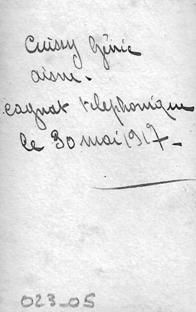 Cuissy Génie
aisne.
cagnat telephonique
le 30 mai 1917-
023_05